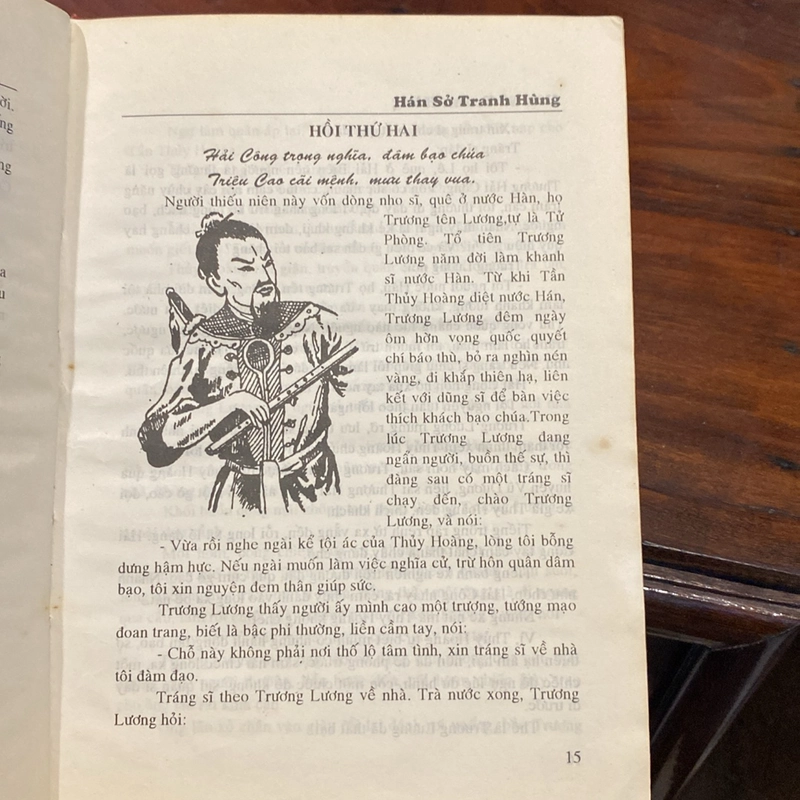 ời.
Hán Sở Tranh Hùng
HỒI THỨ HAI
Hải Công trọng nghĩa, đâm bạo chúa
Triệu Cao cãi mệnh, mưu thay vua.
Người thiếu niên này vốn dòng nho sĩ, quê ở nước Hàn, họ
Trương tên Lương,tự là Tử
Phòng. Tổ tiên Trương
Lương năm đời làm khanh
sĩ nước Hàn. Từ khi Tần
Thủy Hoàng diệt nước Hán,
Trương Lương đêm ngày
ôm hờn vọng quốc quyết
chí báo thù, bỏ ra nghìn nén
vàng, đi khắp thiên hạ, liên
kết với dũng sĩ để bàn việc
thích khách bạo chúa.Trong
lúc Trương Lương đang
ngẩn người, buồn thế sự, thì
đàng sau có một tráng sĩ
chạy đến, chào Trương
Lương, và nói:
- Vừa rồi nghe ngài kể tội ác của Thủy Hoàng, lòng tôi bỗng
dưng hậm hực. Nếu ngài muốn làm việc nghĩa cử, trừ hôn quân dâm
bạo, tôi xin nguyện đem thân giúp sức.
Trương Lương thấy người ấy mình cao một trượng, tướng mạo
đoan trang, biết là bậc phi thường, liền cầm tay, nói:
- Chỗ này không phải nơi thố lộ tâm tình, xin tráng sĩ về nhà
tôi đàm đạo.
Tráng sĩ theo Trương Lương về nhà. Trà nước xong, Trương
Lương hỏi:
15